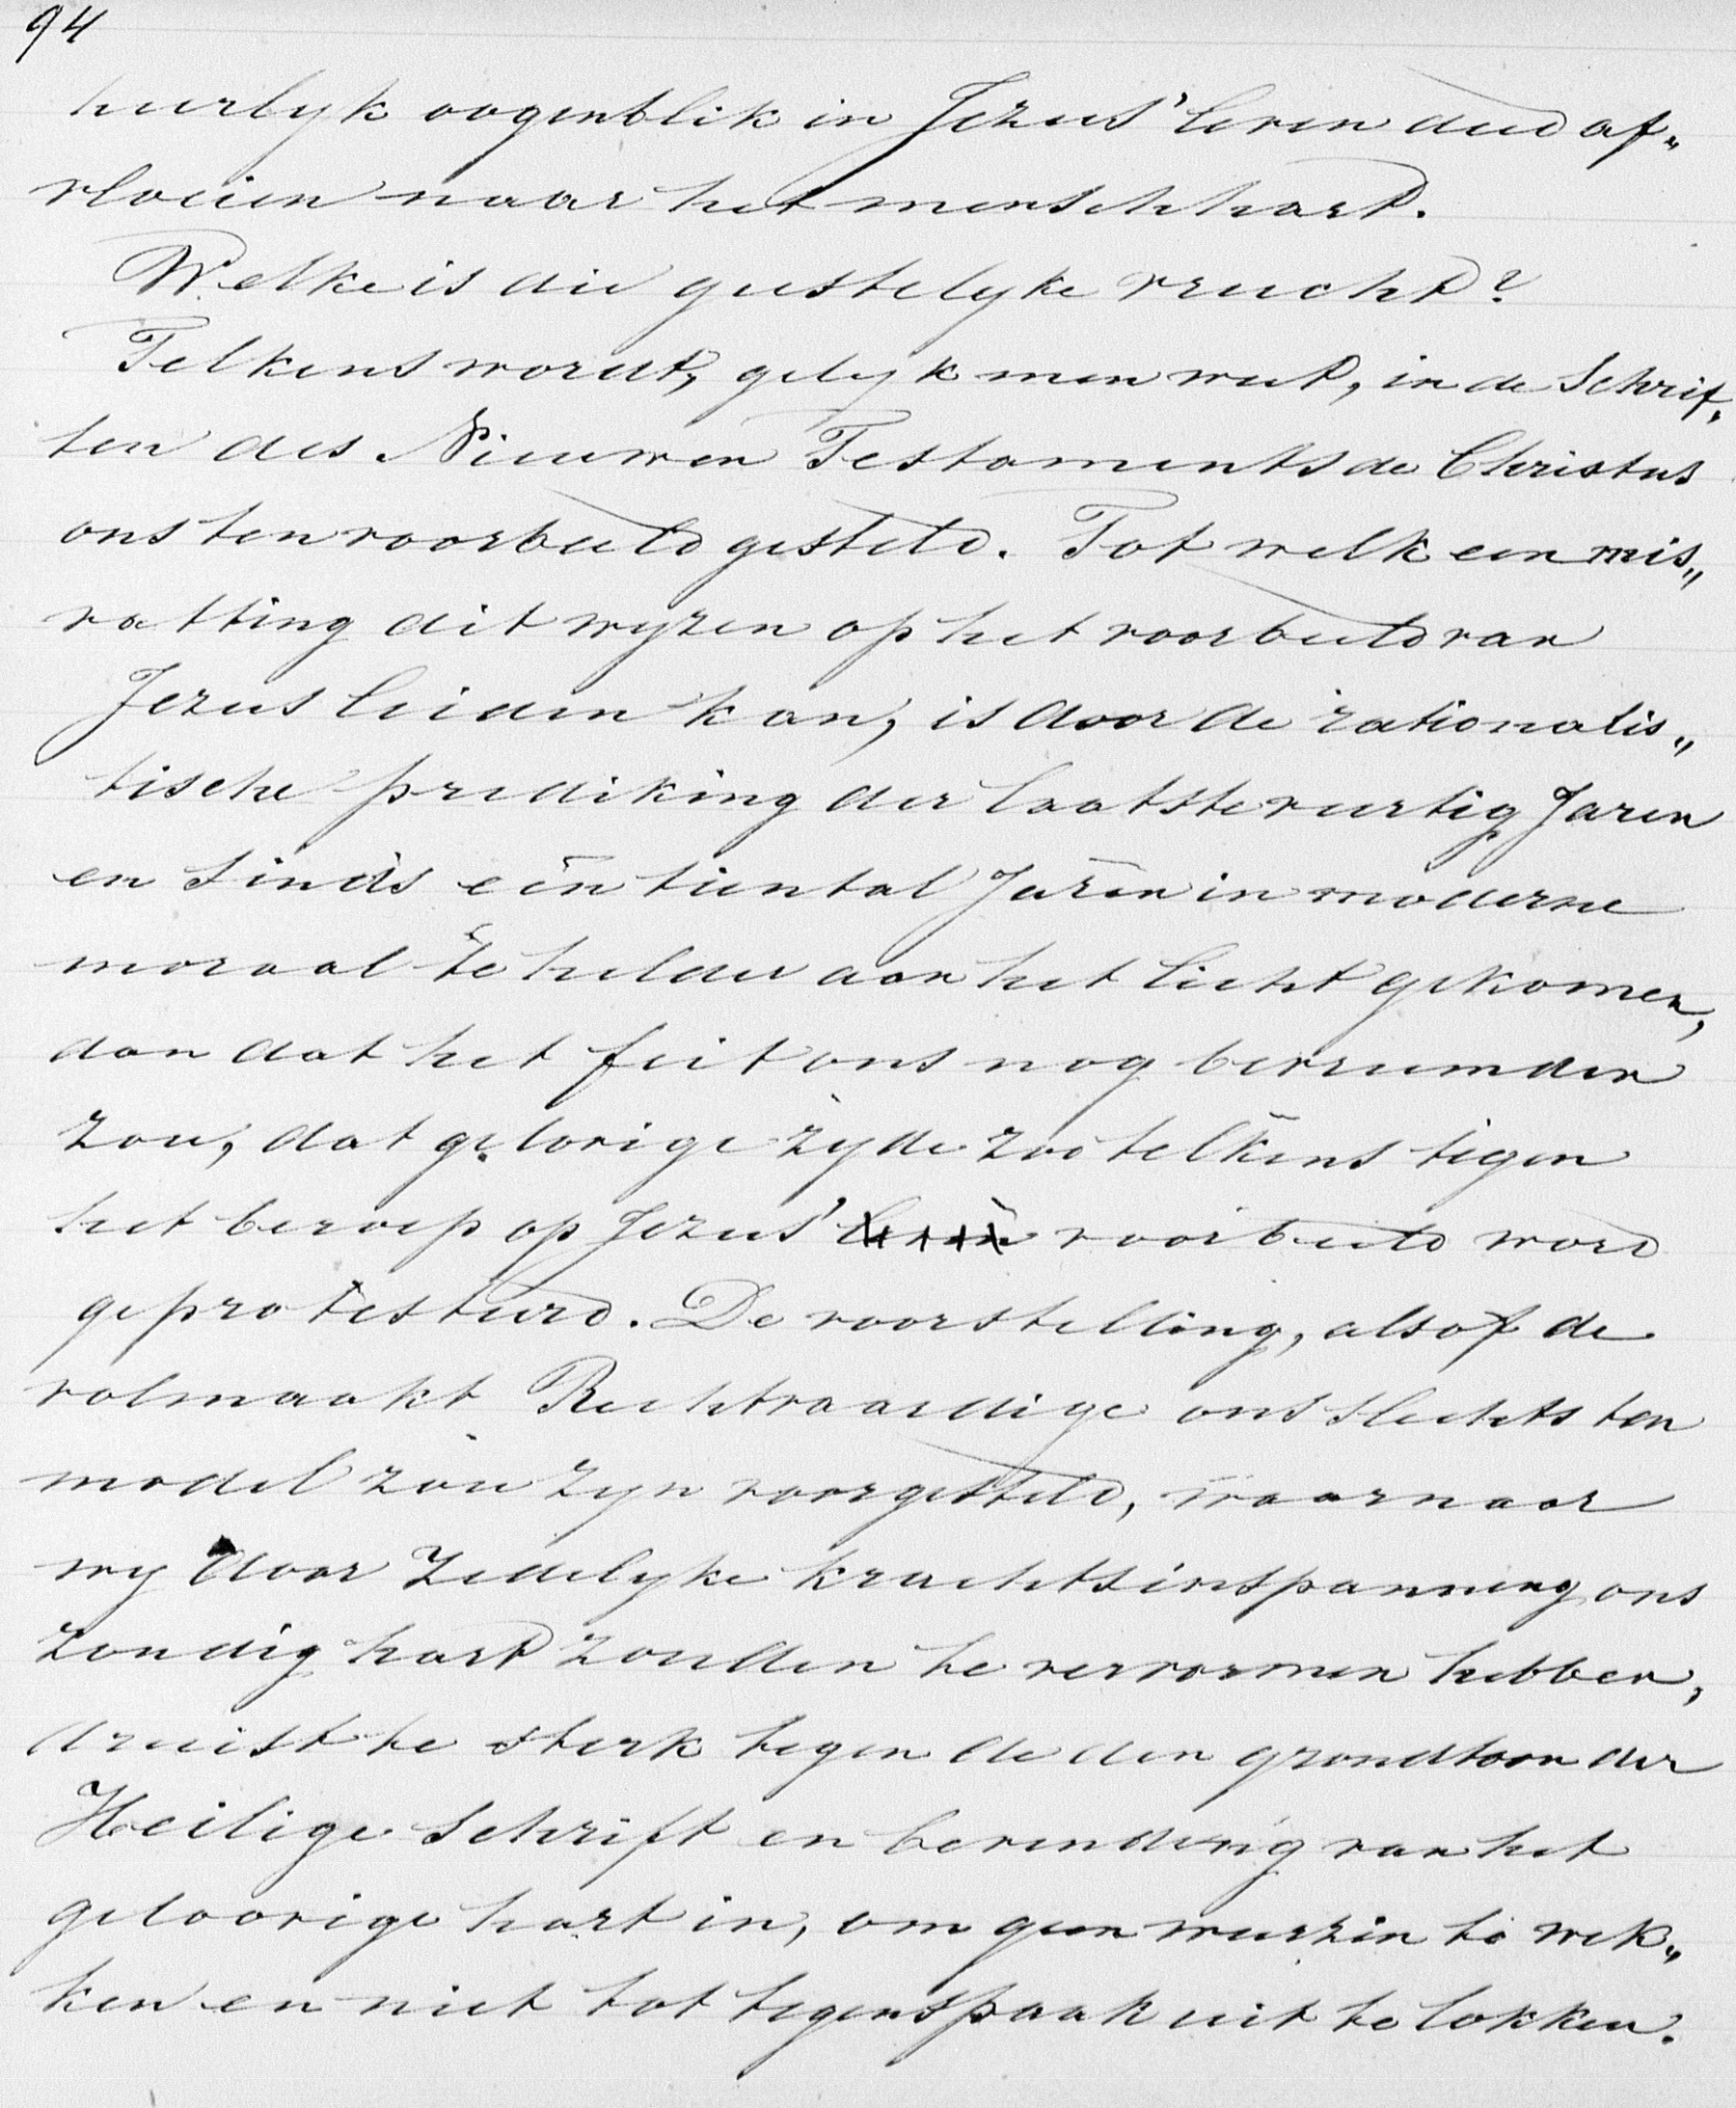 94
heerlyk oogenblik in Jezus' leven deed af„
vloeien naar het menschhart.
Welke is die geestelyke vrucht?
Telkens wordt, gelyk men weet, in de Schrif„
ten des Nieuwen Testaments de Christus
ons ten voorbeeld gesteld. Tot welk een mis„
vatting dit wyzen op het voorbeeld van
Jezus leiden kan, is door de rationalis„
tische prediking der laatste veertig Jaren
en sinds een tiental Jaren in moderne
moraal te helder aan het licht gekomen,
dan dat het feit ons nog bevreemden
zou, dat gelovige zyde zoo telkens tegen
het beroep op Jezus' leven voorbeeld word
geprotesteerd. De voorstelling, alsof de
volmaakt Rechtvaardige ons slechts ten
model zou zyn voorgesteld, waarnaar
wy door zedelyke krachtsinspanning ons
zondig hart zouden te vervormen hebben,
druist te sterk tegen de den grondtoon der
Heilige Schrift en bevinding van het
geloovige hart in, om geen weerzin te wek„
ken en niet tot tegenspraak uit te lokken.